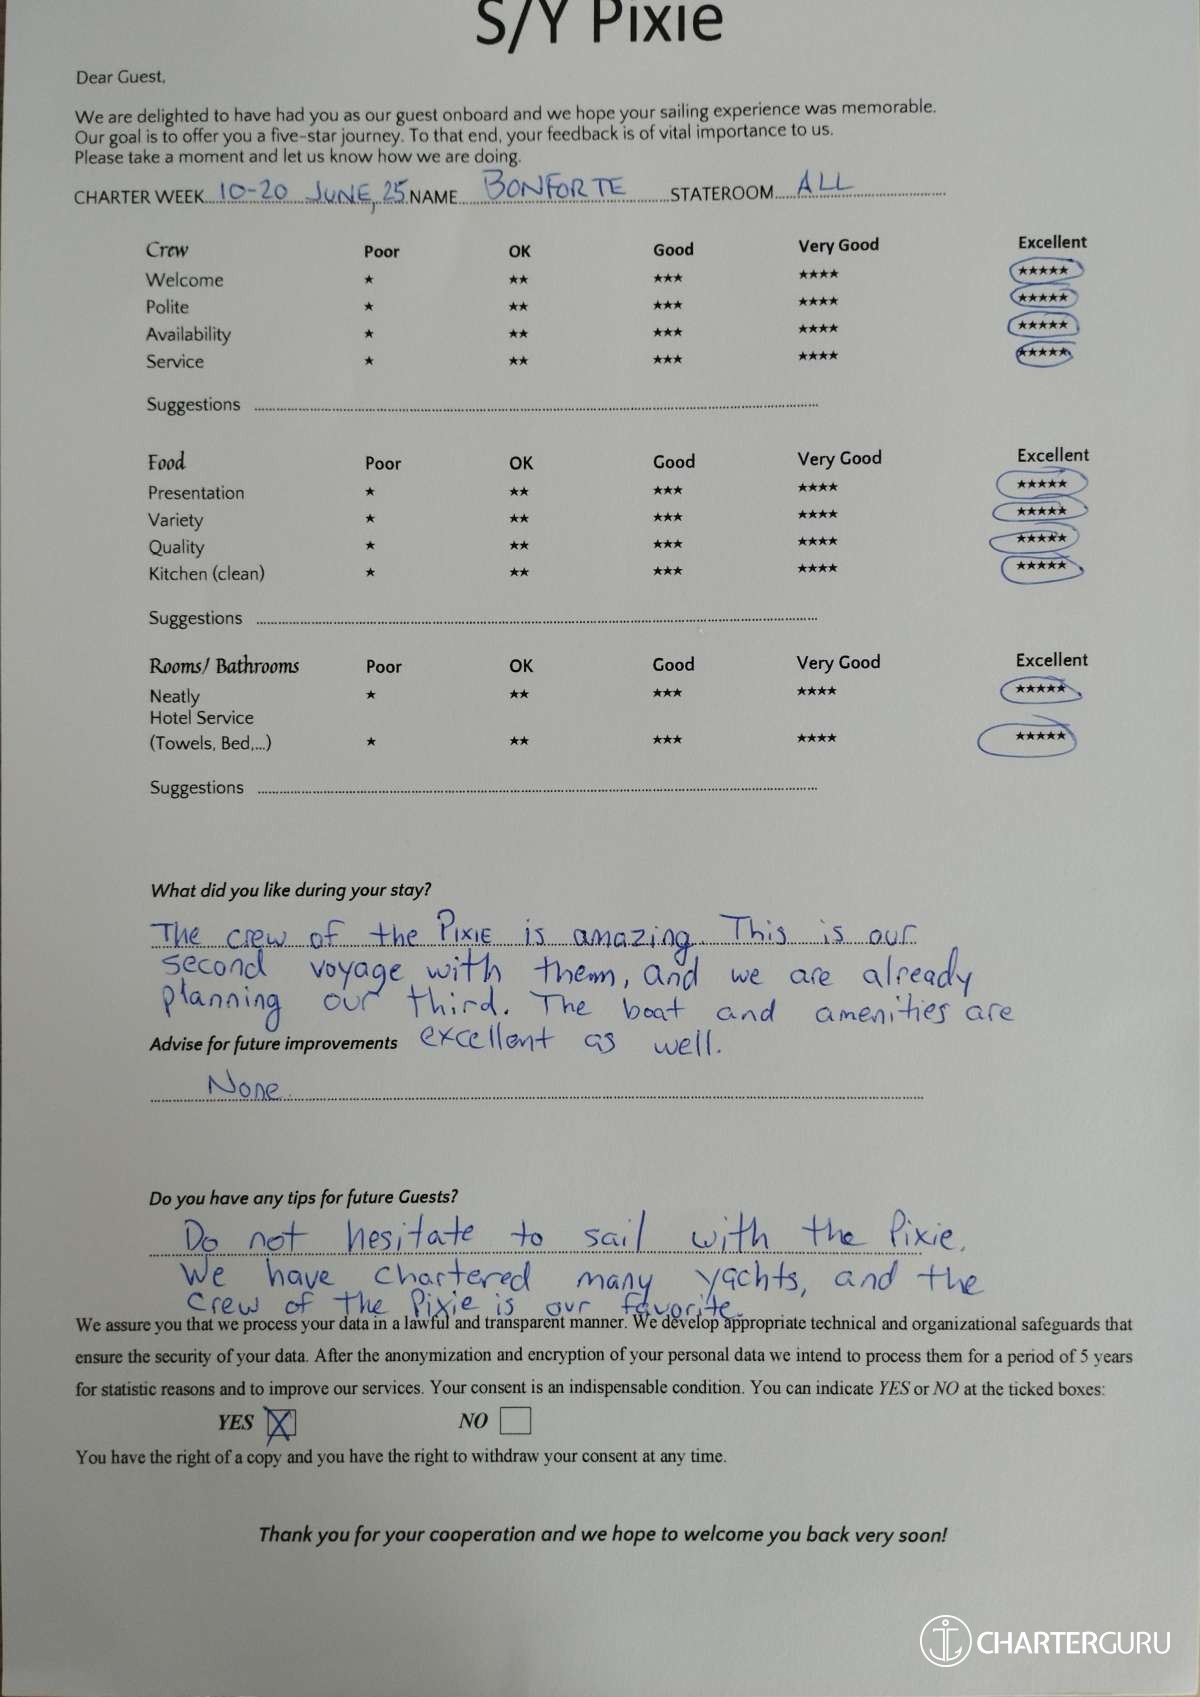 S/Y Pixie
Dear Guest,
We are delighted to have had you as our guest onboard and we hope your sailing experience was memorable.
Our goal is to offer you a five-star journey. To that end, your feedback is of vital importance to us.
Please take a moment and let us know how we are doing.
CHARTER WEEK 10-20 JUNE, 25 NAME BONFORTE STATEROOM ALL
Crew Poor OK Good Very Good Excellent
Welcome ★ ★★ ★★★ ★★★★ ★★★★★
Polite ★ ★★ ★★★ ★★★★ ★★★★★
Availability ★ ★★ ★★★ ★★★★ ★★★★★
Service ★ ★★ ★★★ ★★★★ ★★★★★
Suggestions
Food Poor OK Good Very Good Excellent
Presentation ★ ★★ ★★★ ★★★★ ★★★★★
Variety ★ ★★ ★★★ ★★★★ ★★★★★
Quality ★ ★★ ★★★ ★★★★ ★★★★★
Kitchen (clean) ★ ★★ ★★★ ★★★★ ★★★★★
Suggestions
Rooms/ Bathrooms Poor OK Good Very Good Excellent
Neatly ★ ★★ ★★★ ★★★★ ★★★★★
Hotel Service
(Towels, Bed,...) ★ ★★ ★★★ ★★★★ ★★★★★
Suggestions
What did you like during your stay?
The crew of the Pixie is amazing. This is our
second voyage with them, and we are already
planning our third. The boat and amenities are
Advise for future improvements excellent as well.
None
Do you have any tips for future Guests?
Do not hesitate to sail with the Pixie.
We have chartered many yachts, and the
crew of the Pixie is our favorite.
We assure you that we process your data in a lawful and transparent manner. We develop appropriate technical and organizational safeguards that
ensure the security of your data. After the anonymization and encryption of your personal data we intend to process them for a period of 5 years
for statistic reasons and to improve our services. Your consent is an indispensable condition. You can indicate YES or NO at the ticked boxes:
YES X NO
You have the right of a copy and you have the right to withdraw your consent at any time.
Thank you for your cooperation and we hope to welcome you back very soon!
CHARTERGURU